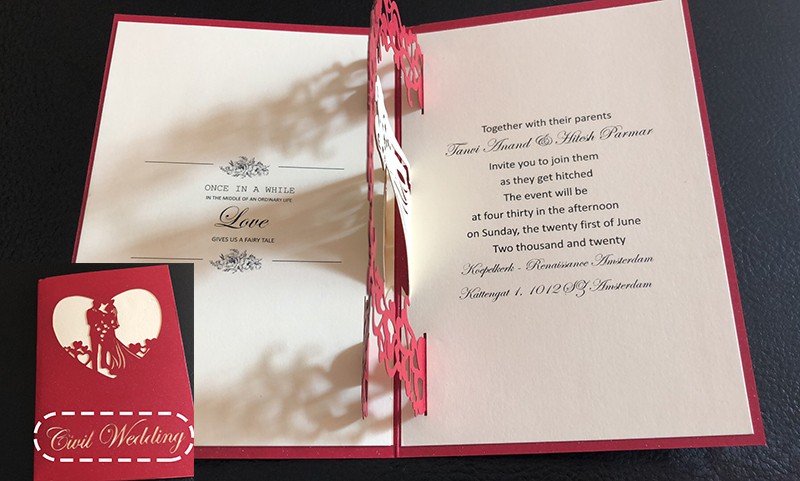 ONCE IN A WHILE
IN THE MIDDLE OF AN ORDINARY LIFE
Love
GIVES US A FAIRY TALE
Together with their parents
Tanvi Anand & Hitesh Parmar
Invite you to join them
as they get hitched
The event will be
at four thirty in the afternoon
on Sunday, the twenty first of June
Two thousand and twenty
Koepelkerk - Renaissance Amsterdam
Kattengat 1, 1012 SZ Amsterdam
Civil Wedding